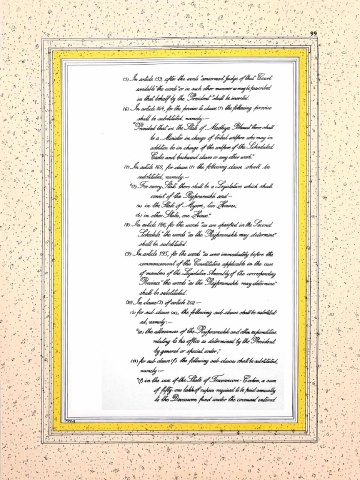 99
(5) In article 159, after the words "senior most Judge of that Court
available" the words "or in such other manner as may be prescribed
in that behalf by the President" shall be inserted.
(6) In article 164, for the proviso to clause (1) the following proviso
shall be substituted, namely:—
"Provided that in the State of Madhya Bharat there shall
be a Minister in charge of tribal welfare who may in
addition be in charge of the welfare of the Scheduled
Castes and backward classes or any other work."
(7) In article 168, for clause (1) the following clause shall be
substituted, namely:—
"(1) For every State there shall be a Legislature which shall
consist of the Rajpramukh and—
(a) in the State of Mysore, two Houses;
(b) in other States, one House."
(8) In article 186, for the words "as are specified in the Second
Schedule" the words "as the Rajpramukh may determine"
shall be substituted.
(9) In article 195, for the words "as were immediately before the
commencement of this Constitution applicable in the case
of members of the Legislative Assembly of the corresponding
Province" the words "as the Rajpramukh may determine"
shall be substituted.
(10) In clause (3) of article 202—
(i) for sub-clause (a), the following sub-clause shall be substitut-
ed, namely:—
"(a) the allowances of the Rajpramukh and other expenditure
relating to his office as determined by the President
by general or special order;"
(ii) for sub-clause (f) the following sub-clauses shall be substituted,
namely:—
"(f) in the case of the State of Travancore-Cochin, a sum
of fifty-one lakhs of rupees required to be paid annually
to the Devaswom fund under the covenant entered